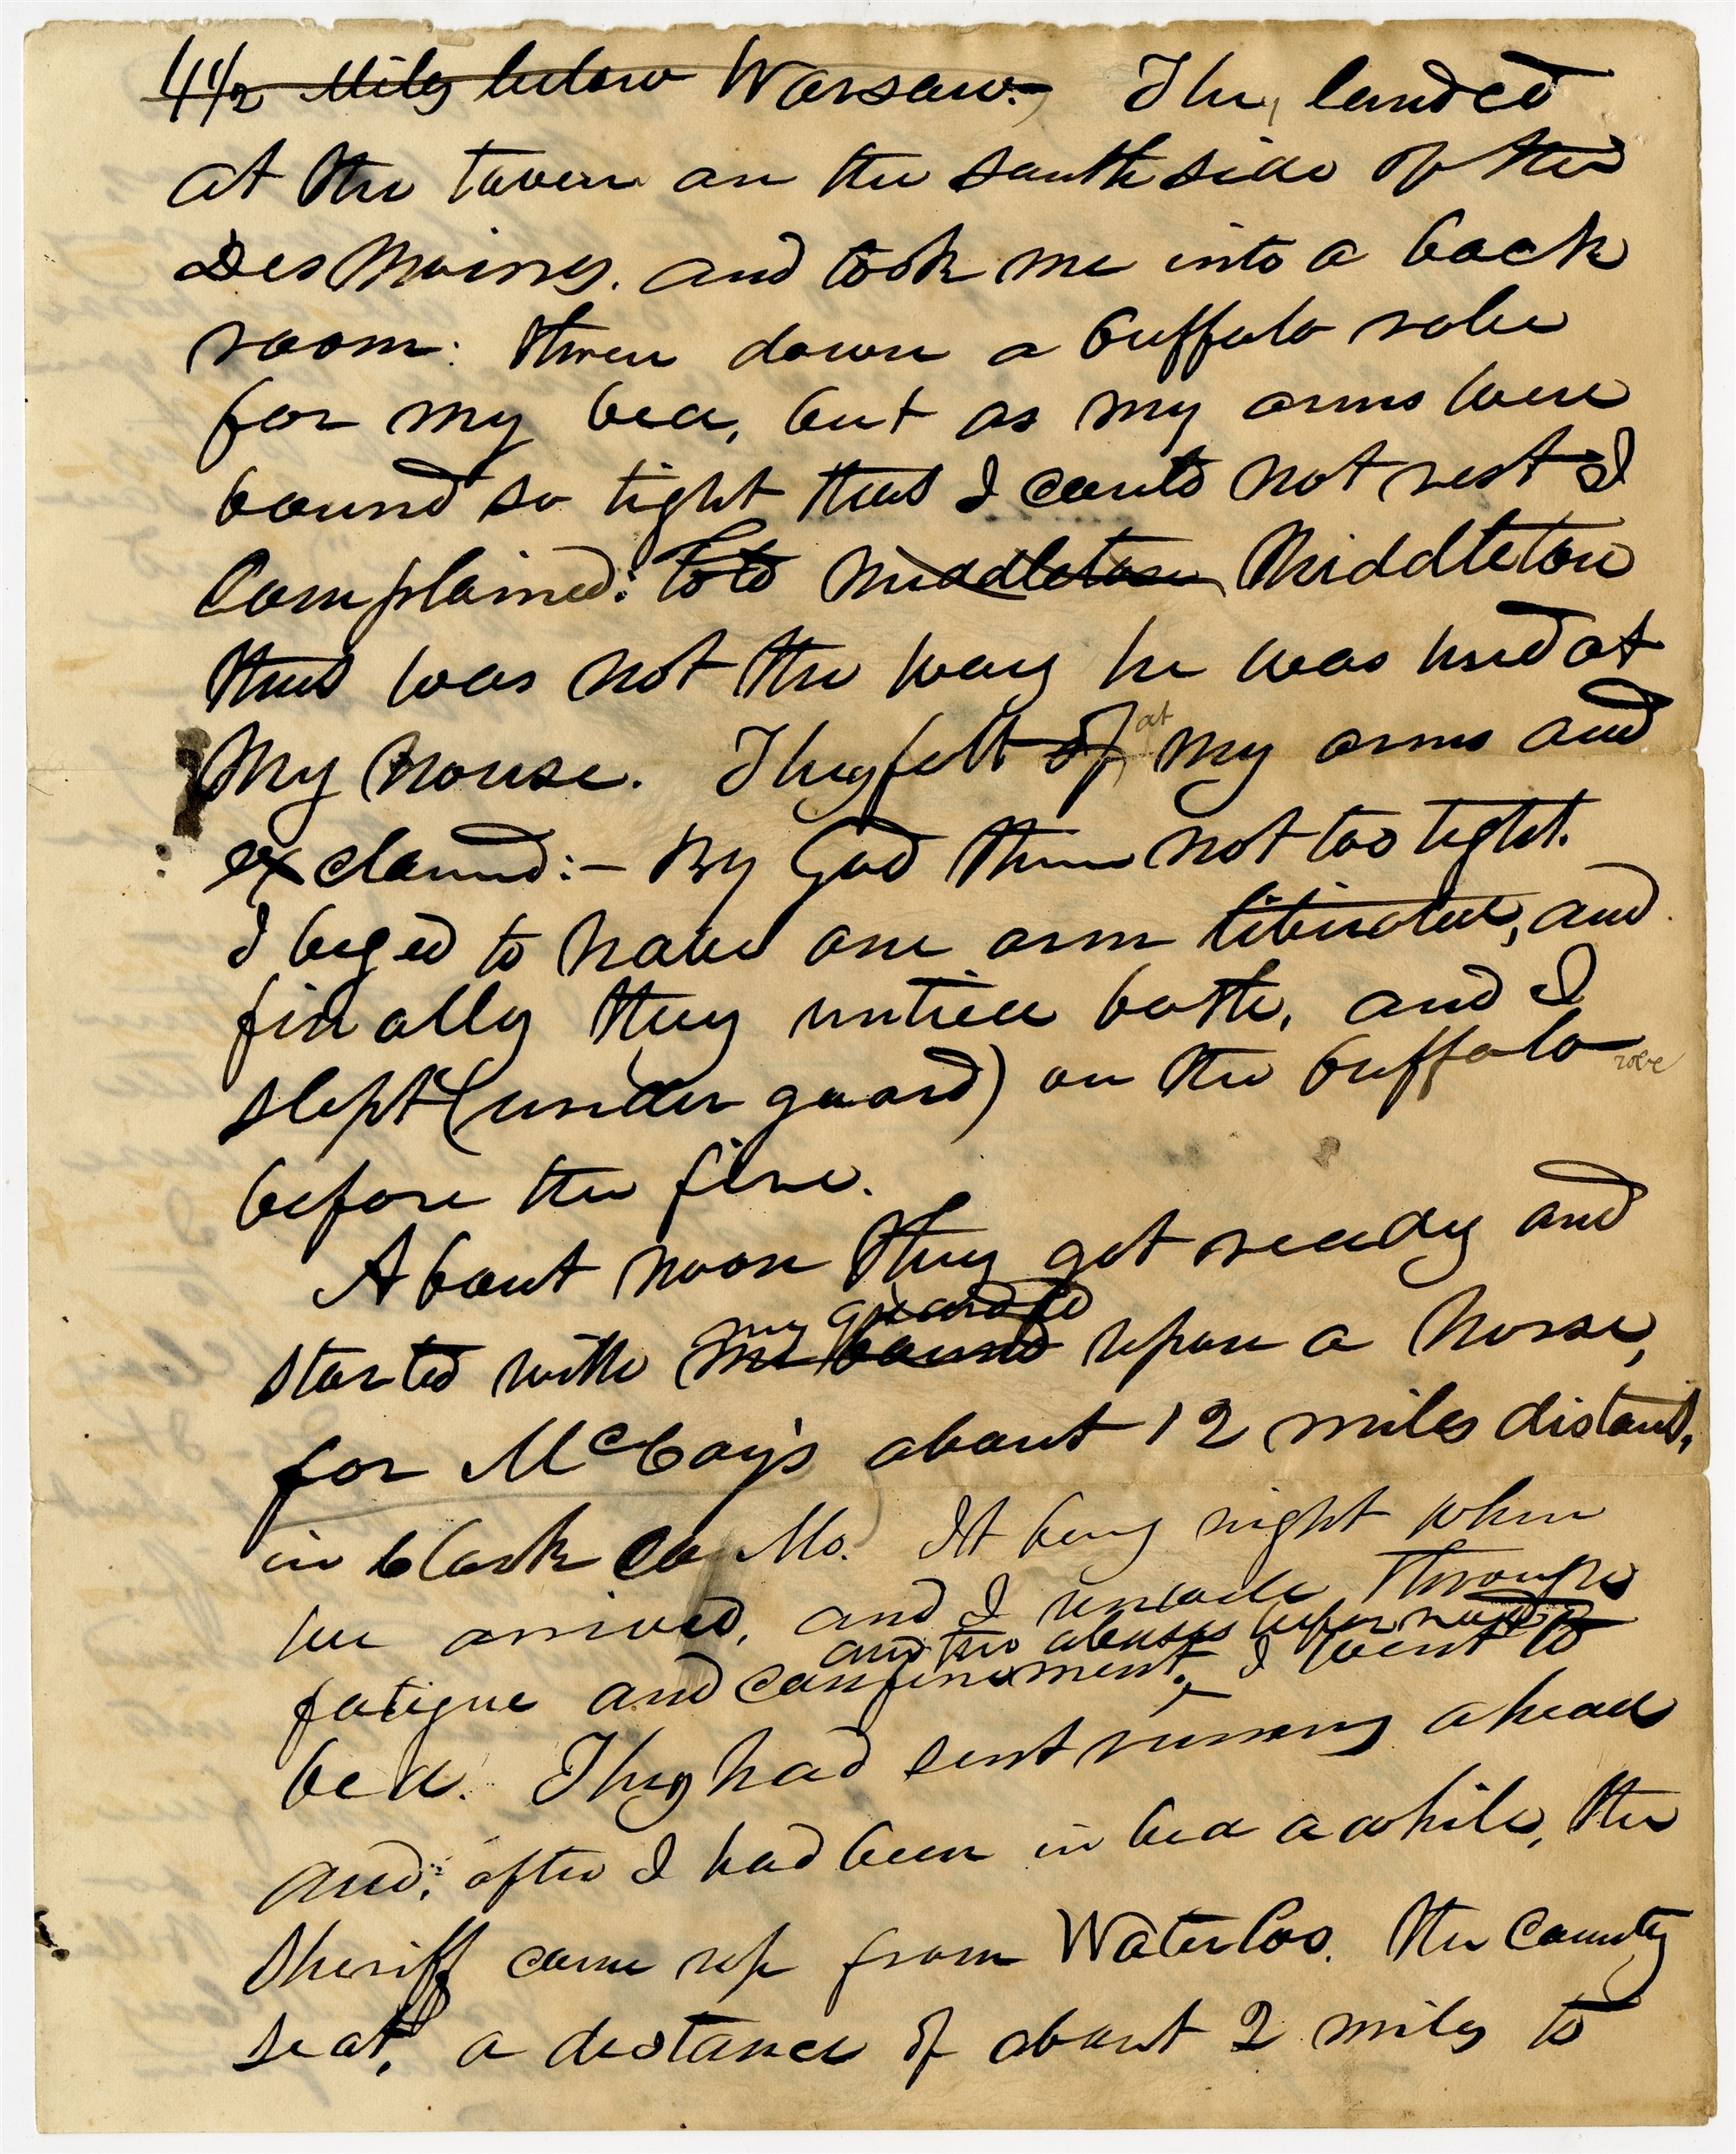 4 1/2 Miles below Warsaw. They landed
at the tavern on the south side of the
Des Moines. and took me into a back
room: threw down a buffalo robe
for my bed, but as my arms were
bound so tight that I could not rest I
Complained: told Middleton Middleton
that was not the way he was used at
My house. They felt of at my arms and
exclamed:— By God them not too tight.
I beged to have one arm liberated, and
finally they untied both, and I
slept (under guard) on the buffalo robe
before the fire.
About noon they got ready and
started with me bound my guarded upon a horse,
for McCoy's about 12 miles distant,
in Clark Co Mo. It being night when
we arrived, and I through
and the abuses
fatigue and confinement, I went to
bed. They had sent runners ahead
and, after I had been in bed a while, the
Sheriff came up from Waterloo. the County
seat, a distance of about 2 miles to